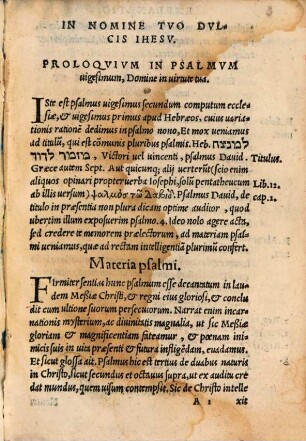 IN NOMINE TVO DVL-
CIS IHESV.
PROLOQVIVM IN PSALMVM
uigesimum, Domine in uirtute tua.
ISte est psalmus uigesimus secundum computum eccle-
siæ, & uigesimus primus apud Hebræos, cuius uaria-
tionis rationẽ dedimus in psalmo nono, Et mox ueniamus
ad titulũ, qui est cõmunis pluribus psalmis. Heb.
למנצח מזמור לדוד, Victori uel uincenti, psalmus David. Titulus.
Græce autem Sept. Aut quicunq; alij uerterũt (scio enim
aliquos opinari propter uerba Iosephi, solũ pentatheucum Lib. 12.
ab illis uersum) ψαλμὸσ τῶ Δαβὶδ. Psalmus David, de cap. 2.
titulo in præsentia non plura dicam optime auditor, quod
ubertim illum exposuerim psalmo. 4. Ideo nolo agere acta,
sed credere te memorem prælectorum, ad materiam psal
mi ueniamus, quæ ad rectam intelligentiã plurimũ confert.
Materia psalmi.
FIrmiter sentias hunc psalmum esse decantatum in lau-
dem Messiæ Christi, & regni eius gloriosi, & conclu
dit cum ultione suorum persecutorum. Narrat enim incar-
nationis mysterium, ac diuinitatis magnalia, ut sic Messiæ
gloriam & magnificentiam fateamur, & pœnam inimi-
cis suis in uita præsenti & futura infligẽdam, euadamus.
Et sicut glossa ait. Psalmus hic est tertius de duabus naturis
in Christo, sicut secundus et octauus supra, ut ex auditu cre
dat mundus, quem uisum contempsit. Sic de Christo intelle
A 2 xit